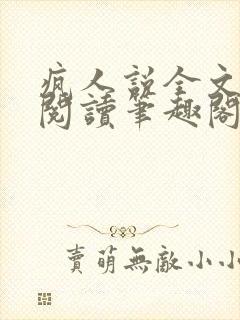 瘋人說全文
閱讀筆趣閣
賣萌無敵小小